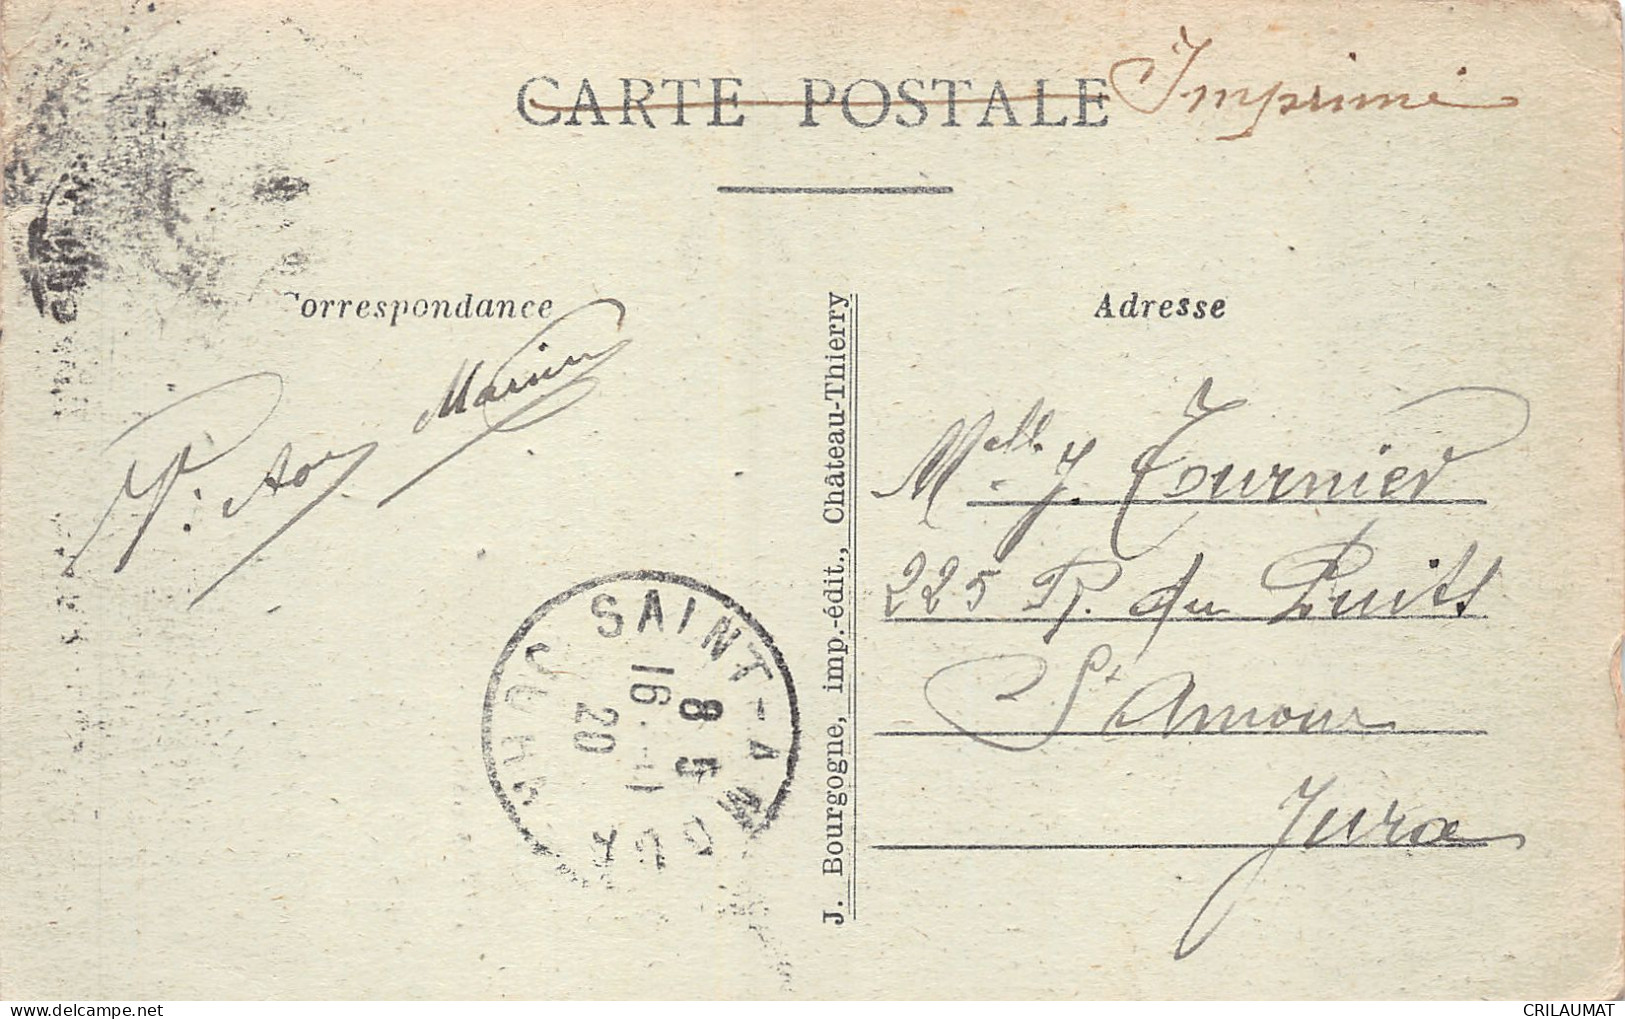 CARTE POSTALE Imprimé
Correspondance
Adresse
J. Bourgogne, imp.-édit., Château-Thierry
Melle. J. Tournier
225 R. du Puits
St Amour
Jura
SAINT-AMOUR
JURA
8 5
16 -11
20
CRILAUMAT